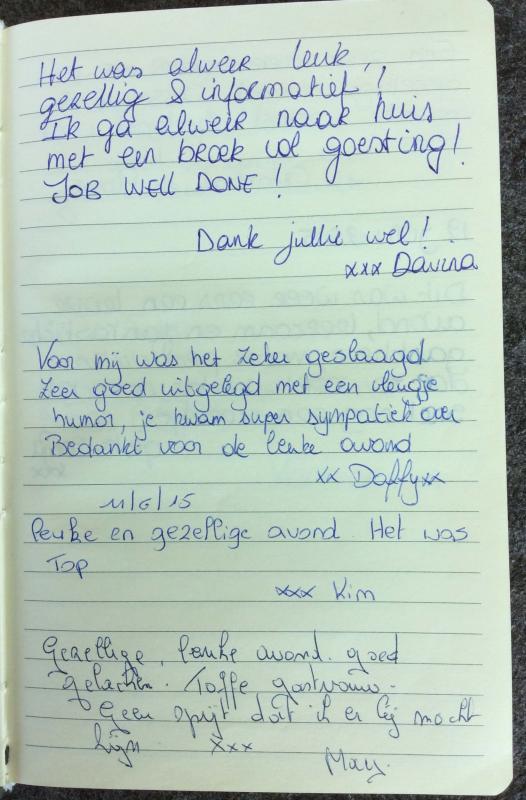 Het was alweer leuk,
gezellig & informatief!
Ik ga alweer naar huis
met een broek vol goesting!
JOB WELL DONE!
Dank jullie wel!
xxx Davina
Voor mij was het zeker geslaagd
Zeer goed uitgelegd met een vleugje
humor, je kwam super sympatiek over
Bedankt voor de leuke avond
xx Daffy xx
11/6/15
leuke en gezellige avond. Het was
Top
xxx Kim
Gezellige, leuke avond. goed
gelachen. Toffe gastvrouw.
Geen spijt dat ik er bij mocht
zijn xxx
May.